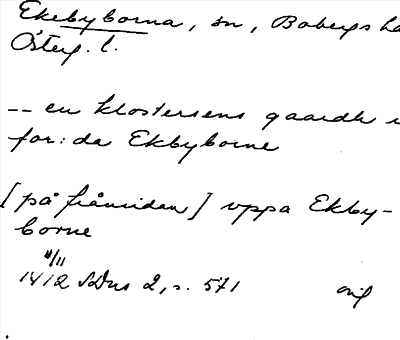 Ekebyborna, sn, Bobergs hd
Österg. l.
-- en klostersens gaardh
for: da Ekbyborne
[på frånsidan] uppa Ekby-
borne
11/11
1412 SDns 2, s. 571 orig